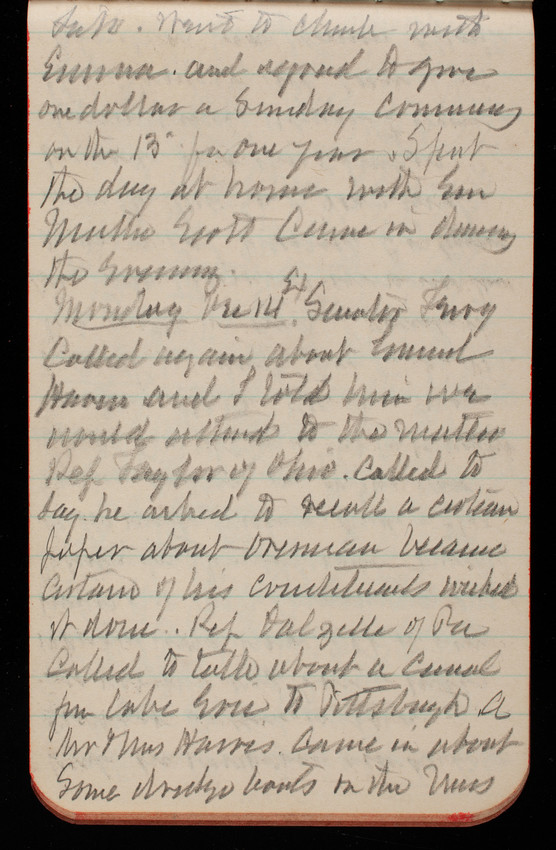 Went to church with
Emma. and agreed to give
one dollar a Sunday commencing
on the 13" for one year. Spent
the day at home with Em
Mattie Scott Came in during
the evening.
Monday Dec 14 Ex. Senator Ferry
Called again about Grand
Haven and I told him we
would attend to the matter
Rep Taylor of Ohio. called to
say he asked to recall a certain
paper about because
certain of his constituents wished
it done. Rep Dalzelle of Pa
Called to talk about a canal
from lake Erie to Pittsburgh. A
Mr & Mrs Harris. Came in about
Some dredge boats on the